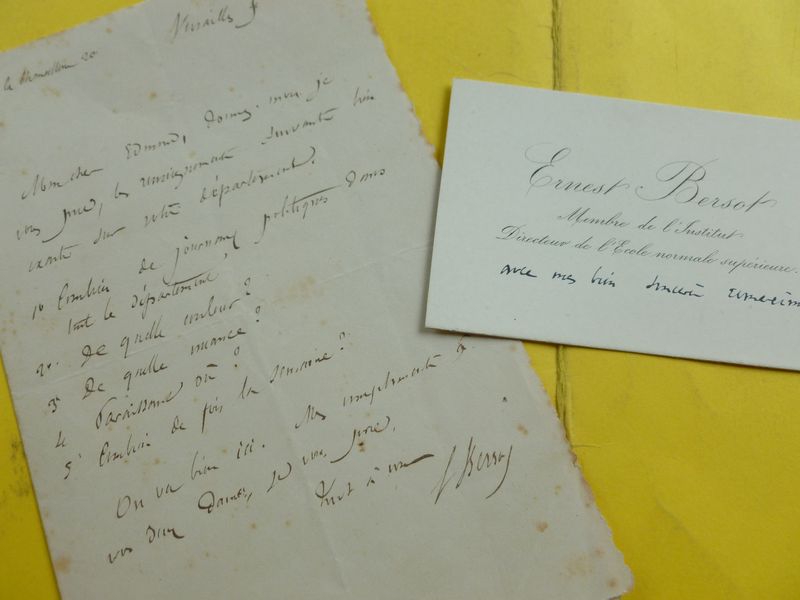 Versailles
Mon cher Edmond, donnez-moi, je
vous prie, les renseignements suivants bien
exacts sur votre département.
1º Combien de journaux politiques dans
tout le département?
2º. De quelle couleur?
3º De quelle nuance?
4 Paraissant où?
5º Combien de fois la semaine?
On va bien ici. Mes compliments à
vos deux dames, je vous prie.
Tout à vous
E Bersot
Ernest Bersot
Membre de l'Institut
Directeur de l'Ecole normale supérieure.
avec mes bien sincères